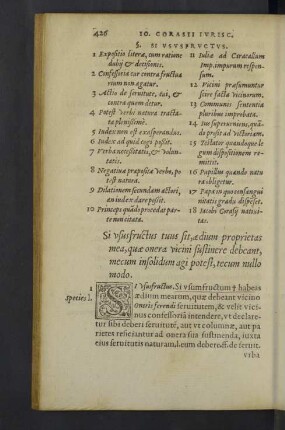 426 IO. CORASII IVRISC.
§. SI VSVSFRVCTVS.
1 Expositio literæ, cum ratione
dubij & decisionis.
2 Confessoria cur contra fructua
rium non agatur.
3 Actio de seruitute, cui, &
contra quem detur.
4 Potest Verbi natura tracta
ta plenissimè.
5 Index non est exasperandus.
6 Index ad quid togi possit.
7 Verba necessitatis, & Volun
tatis.
8 Negatiua præposita Verbo, po
test natura.
9 Dilationem secundam actori,
an iudex dare possit.
10 Princeps quâdo præcedat par
te non citata.
11 Iulia ad Caracallam
Imp. impurum respon-
sum.
12 Vicini præsumuntur
scire facta Vicinorum.
13 Communis sententia
pluribus improbata.
14 Ius superueniens, quâ
do prosit ad Victoriam.
15 Titlator quandoque le
gum dispositionem re-
mittit.
16 Papillus quando natu
ris obligatur.
17 Papa in quotensangui
nitatis gradu dispesset.
18 Iacobi Corasij natiui-
tas.
Si vsusfructus tuus sit, ædium proprietas
mea, quæ onera vicini sustinere debeant,
mecum insolidum agi potest, tecum nullo
modo.
1
species l.
SI Vsusfructus. Si vsumfructum † habeas
ædium mearum, quæ debeant vicino
Oneris ferendi seruitutem, & velit vici-
nus confessoriā intendere, vt declare-
tur sibi deberi seruitutē, aut vt columnæ, aut pa
rietes reficiantur ad onera sua sustinenda, iuxta
eius seruitutis naturam, l. eum debere. ff. de seruit.
vrba